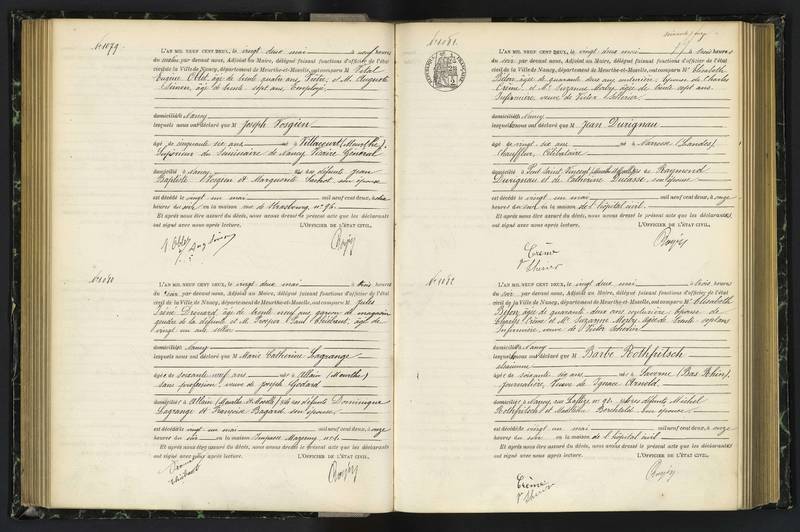 N° 1079
L'AN MIL NEUF CENT DEUX, le vingt deux mai à neuf heures
du matin par devant nous, Adjoint au Maire, délégué faisant fonctions d'officier de l'état
civil de la Ville de Nancy, département de Meurthe-et-Moselle, ont comparu M Vital
Eugène Oblet, âgé de trente quatre ans, et M. Auguste
Simon, âgé de trente sept ans, Employé
domiciliés à Nancy
lesquels nous ont déclaré que M Joseph Vosgien
âgé de cinquante six ans né à Villacourt
Supérieur du Séminaire de Nancy, Vicaire Général
domicilié à Nancy fils des défunts Jean
Baptiste Vosgien et Marguerite son épouse
est décédé le vingt un mai mil neuf cent deux, à
heures du soir en la maison rue de Strasbourg n° 96.
Et après nous être assuré du décès, nous avons dressé le présent acte que les déclarants
ont signé avec nous après lecture. L'OFFICIER DE L'ÉTAT CIVIL,
N° 1080
L'AN MIL NEUF CENT DEUX, le vingt deux mai à trois heures
du soir par devant nous, Adjoint au Maire, délégué faisant fonctions d'officier de l'état
civil de la Ville de Nancy, département de Meurthe-et-Moselle, ont comparu M Jules
Drouard, âgé de trente neuf ans, garçon de magasin
gendre de la défunte et M. Prosper Paul Thiébaut, âgé de
vingt un ans
domiciliés à Nancy
lesquels nous ont déclaré que M Marie Catherine Lagrange
âgée de soixante neuf ans née à Allain (Meurthe)
sans profession veuve de Joseph Godard
domiciliée à Allain (Meurthe et Moselle) fille des défunts Dominique
Lagrange et Françoise Bagard son épouse
est décédée le vingt un mai mil neuf cent deux, à onze
heures du soir en la maison Impasse
Et après nous être assuré du décès, nous avons dressé le présent acte que les déclarants
ont signé avec nous après lecture. L'OFFICIER DE L'ÉTAT CIVIL,
N° 1081
L'AN MIL NEUF CENT DEUX, le vingt deux mai à trois heures
du soir par devant nous, Adjoint au Maire, délégué faisant fonctions d'officier de l'état
civil de la Ville de Nancy, département de Meurthe-et-Moselle, ont comparu M Elisabeth
âgée de quarante deux ans couturière, épouse de Charles
Crème et Mme Suzanne âgée de trente sept ans
Infirmière, veuve de Victor
domiciliés à Nancy
lesquels nous ont déclaré que M Jean Durignau
âgé de vingt six ans né à (Landes)
Chauffeur, Célibataire
domicilié à Pont Saint Vincent fils de Raymond
Durignau et de Catherine Ducasse son épouse
est décédé le vingt un mai mil neuf cent deux, à onze
heures du soir en la maison de l'hôpital civil
Et après nous être assuré du décès, nous avons dressé le présent acte que les déclarants
ont signé avec nous après lecture. L'OFFICIER DE L'ÉTAT CIVIL,
Crème
N° 1082
L'AN MIL NEUF CENT DEUX, le vingt deux mai à trois heures
du soir par devant nous, Adjoint au Maire, délégué faisant fonctions d'officier de l'état
civil de la Ville de Nancy, département de Meurthe-et-Moselle, ont comparu M Elisabeth
âgée de quarante deux ans couturière épouse de
Charles Crème et Mme Suzanne âgée de trente sept ans
Infirmière, veuve de Victor
domiciliés à Nancy
lesquels nous ont déclaré que M Barbe Rothfritsch
âgée de soixante six ans née à Saverne (Bas Rhin),
journalière, Veuve de Ignace Arnold
domiciliée à Nancy, fille des défunts Michel
Rothfritsch et Madeleine son épouse
est décédée le vingt un mai mil neuf cent deux, à onze
heures du soir en la maison de l'hôpital civil
Et après nous être assuré du décès, nous avons dressé le présent acte que les déclarants
ont signé avec nous après lecture. L'OFFICIER DE L'ÉTAT CIVIL,
Crème